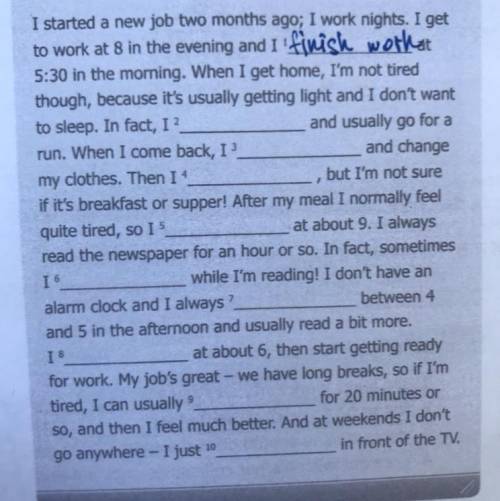 I started a new job two months ago; I work nights. I get
to work at 8 in the evening and I ¹ finish work at
5:30 in the morning. When I get home, I'm not tired
though, because it's usually getting light and I don't want
to sleep. In fact, I ² ____________ and usually go for a
run. When I come back, I ³ ____________ and change
my clothes. Then I ⁴ ____________, but I'm not sure
if it's breakfast or supper! After my meal I normally feel
quite tired, so I ⁵ ____________ at about 9. I always
read the newspaper for an hour or so. In fact, sometimes
I ⁶ ____________ while I'm reading! I don't have an
alarm clock and I always ⁷ ____________ between 4
and 5 in the afternoon and usually read a bit more.
I ⁸ ____________ at about 6, then start getting ready
for work. My job's great – we have long breaks, so if I'm
tired, I can usually ⁹ ____________ for 20 minutes or
so, and then I feel much better. And at weekends I don't
go anywhere – I just ¹⁰ ____________ in front of the TV.